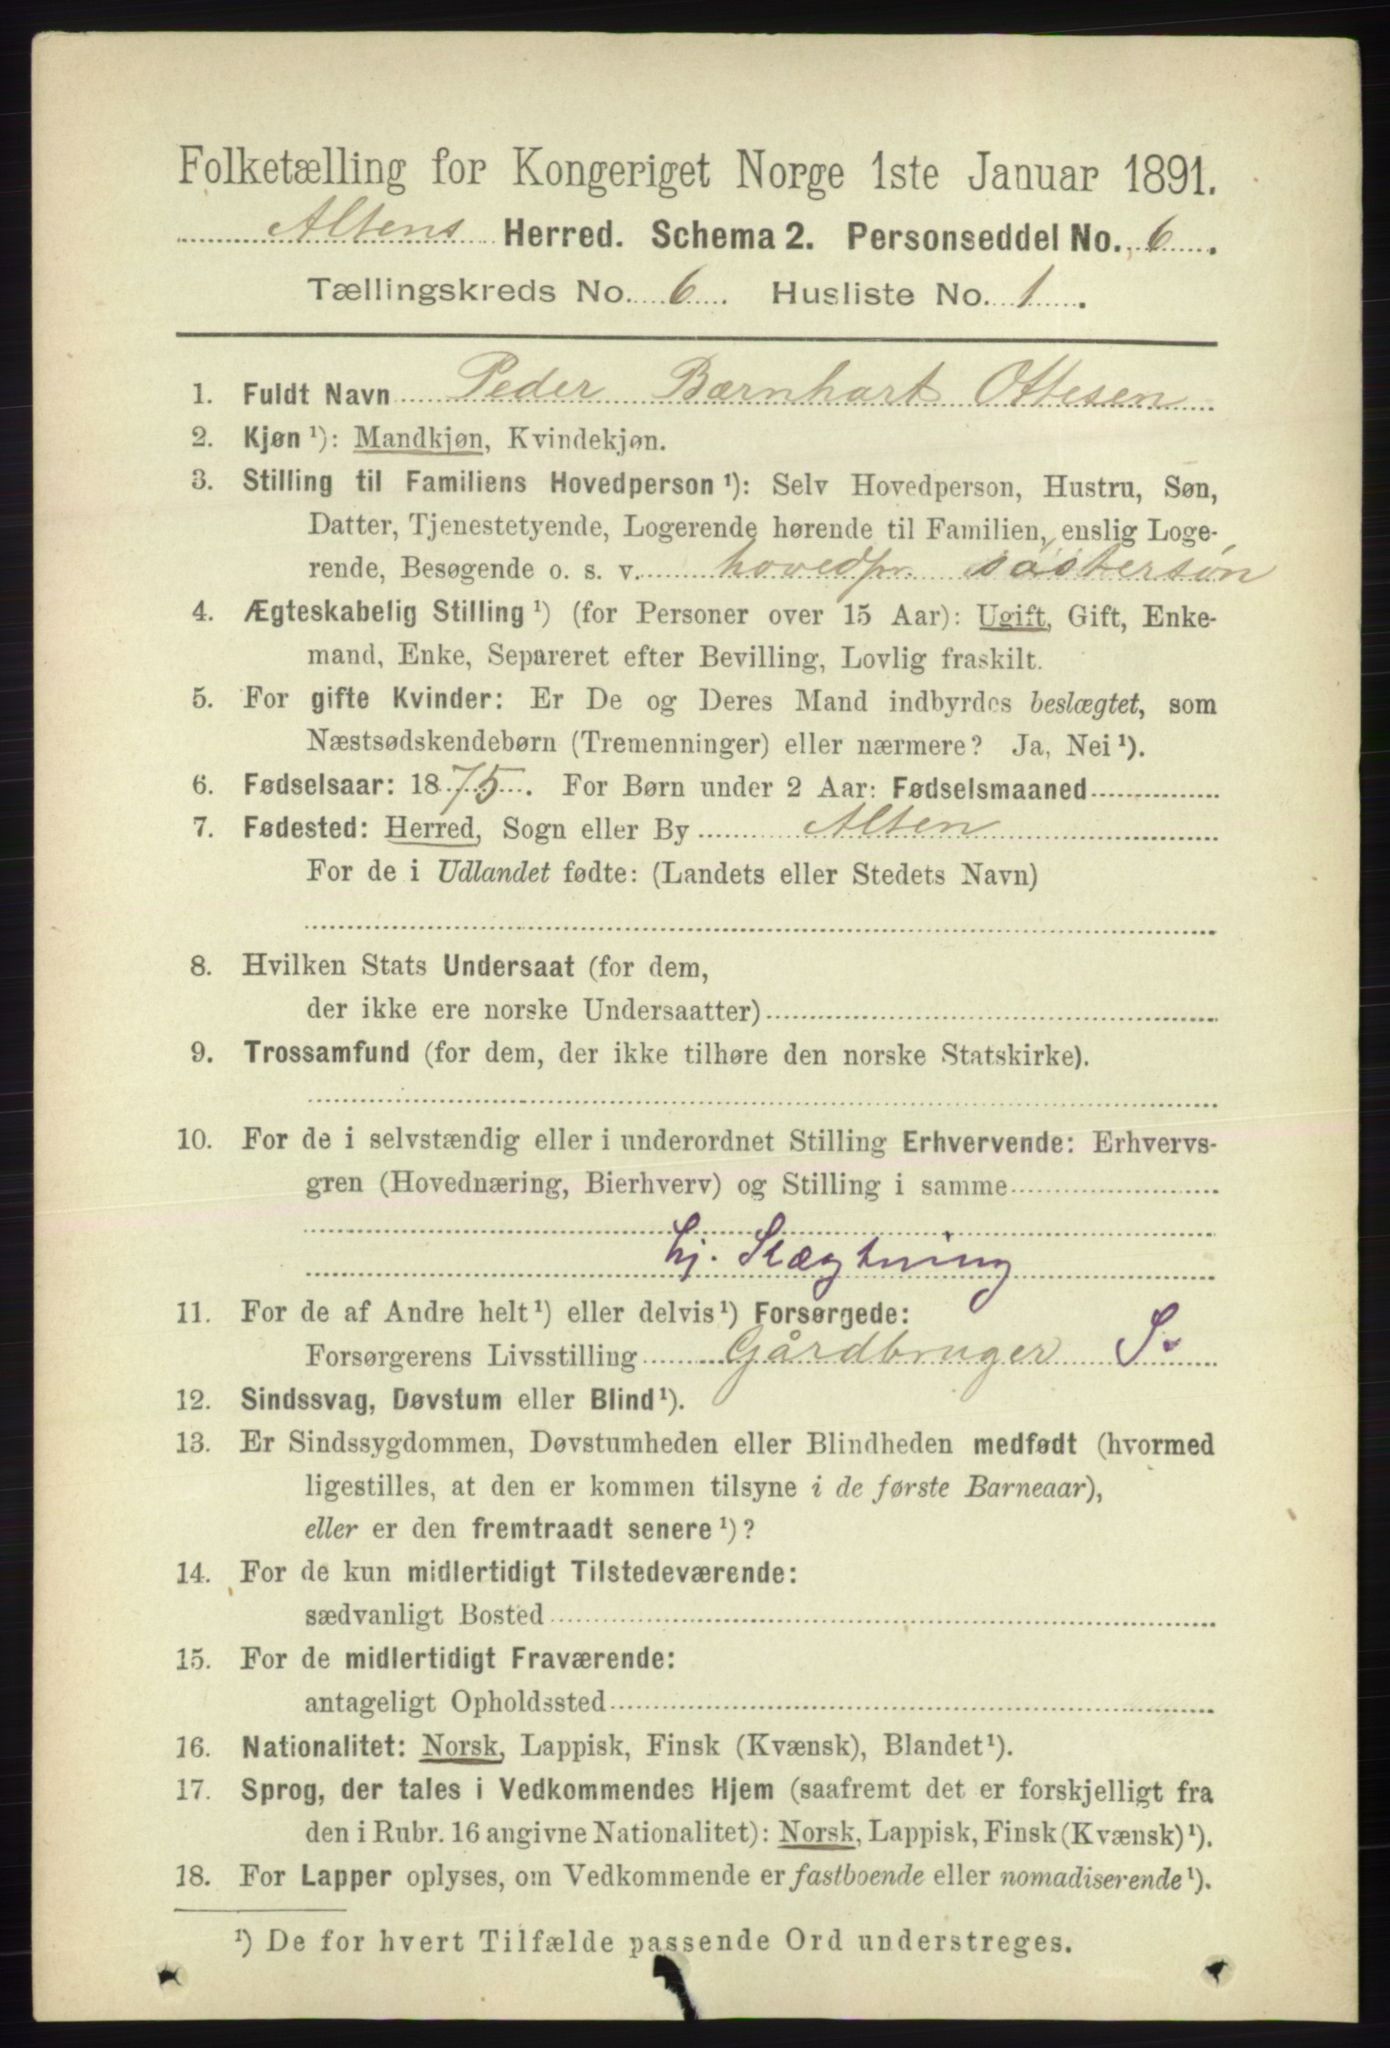 Folketælling for Kongeriget Norge 1ste Januar 1891.
Altens Herred. Schema 2. Personseddel No. 6.
Tællingskreds No. 6. Husliste No. 1.
1. Fuldt Navn Peder Bærnhart Ottesen
2. Kjøn ¹): Mandkjøn, Kvindekjøn.
3. Stilling til Familiens Hovedperson ¹): Selv Hovedperson, Hustru, Søn,
Datter, Tjenestetyende, Logerende hørende til Familien, enslig Loge-
rende, Besøgende o. s. v. hovedpr. søstersøn
4. Ægteskabelig Stilling ¹) (for Personer over 15 Aar): Ugift, Gift, Enke-
mand, Enke, Separeret efter Bevilling, Lovlig fraskilt.
5. For gifte Kvinder: Er De og Deres Mand indbyrdes beslægtet, som
Næstsødskendebørn (Tremenninger) eller nærmere? Ja, Nei ¹).
6. Fødselsaar: 1875. For Børn under 2 Aar: Fødselsmaaned
7. Fødested: Herred, Sogn eller By Alten
For de i Udlandet fødte: (Landets eller Stedets Navn)
8. Hvilken Stats Undersaat (for dem,
der ikke ere norske Undersaatter)
9. Trossamfund (for dem, der ikke tilhøre den norske Statskirke).
10. For de i selvstændig eller i underordnet Stilling Erhvervende: Erhvervs-
gren (Hovednæring, Bierhverv) og Stilling i samme
hj. Slægtning
11. For de af Andre helt ¹) eller delvis ¹) Forsørgede:
Forsørgerens Livsstilling Gårdbruger S.
12. Sindssvag, Døvstum eller Blind ¹).
13. Er Sindssygdommen, Døvstumheden eller Blindheden medfødt (hvormed
ligestilles, at den er kommen tilsyne i de første Barneaar),
eller er den fremtraadt senere ¹)?
14. For de kun midlertidigt Tilstedeværende:
sædvanligt Bosted
15. For de midlertidigt Fraværende:
antageligt Opholdssted
16. Nationalitet: Norsk, Lappisk, Finsk (Kvænsk), Blandet ¹).
17. Sprog, der tales i Vedkommendes Hjem (saafremt det er forskjelligt fra
den i Rubr. 16 angivne Nationalitet): Norsk, Lappisk, Finsk (Kvænsk) ¹).
18. For Lapper oplyses, om Vedkommende er fastboende eller nomadiserende ¹).
¹) De for hvert Tilfælde passende Ord understreges.